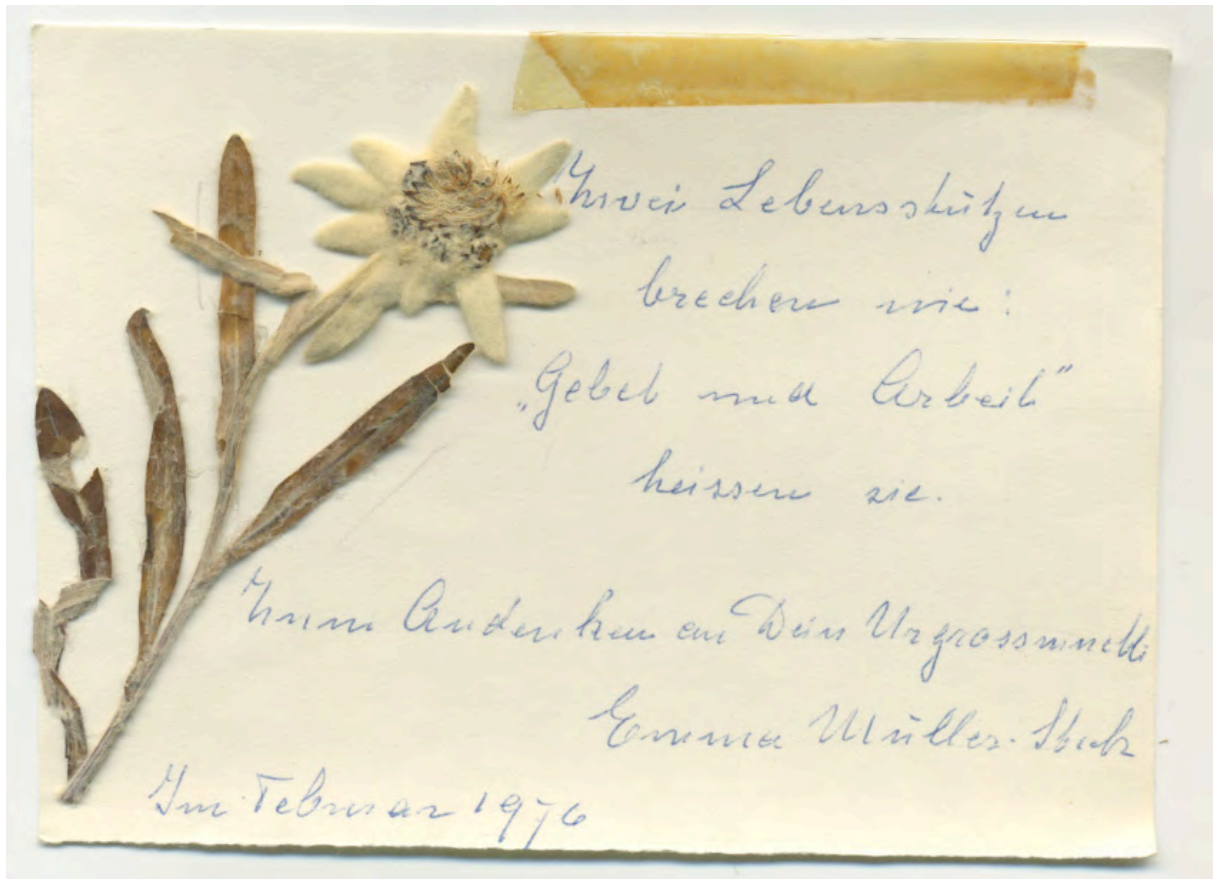 Zwei Lebensstützen
brechen nie:
„Gebet und Arbeit"
heissen sie.
Zum Andenken an Dein Urgrossmutti
Emma Müller-
Im Februar 1976